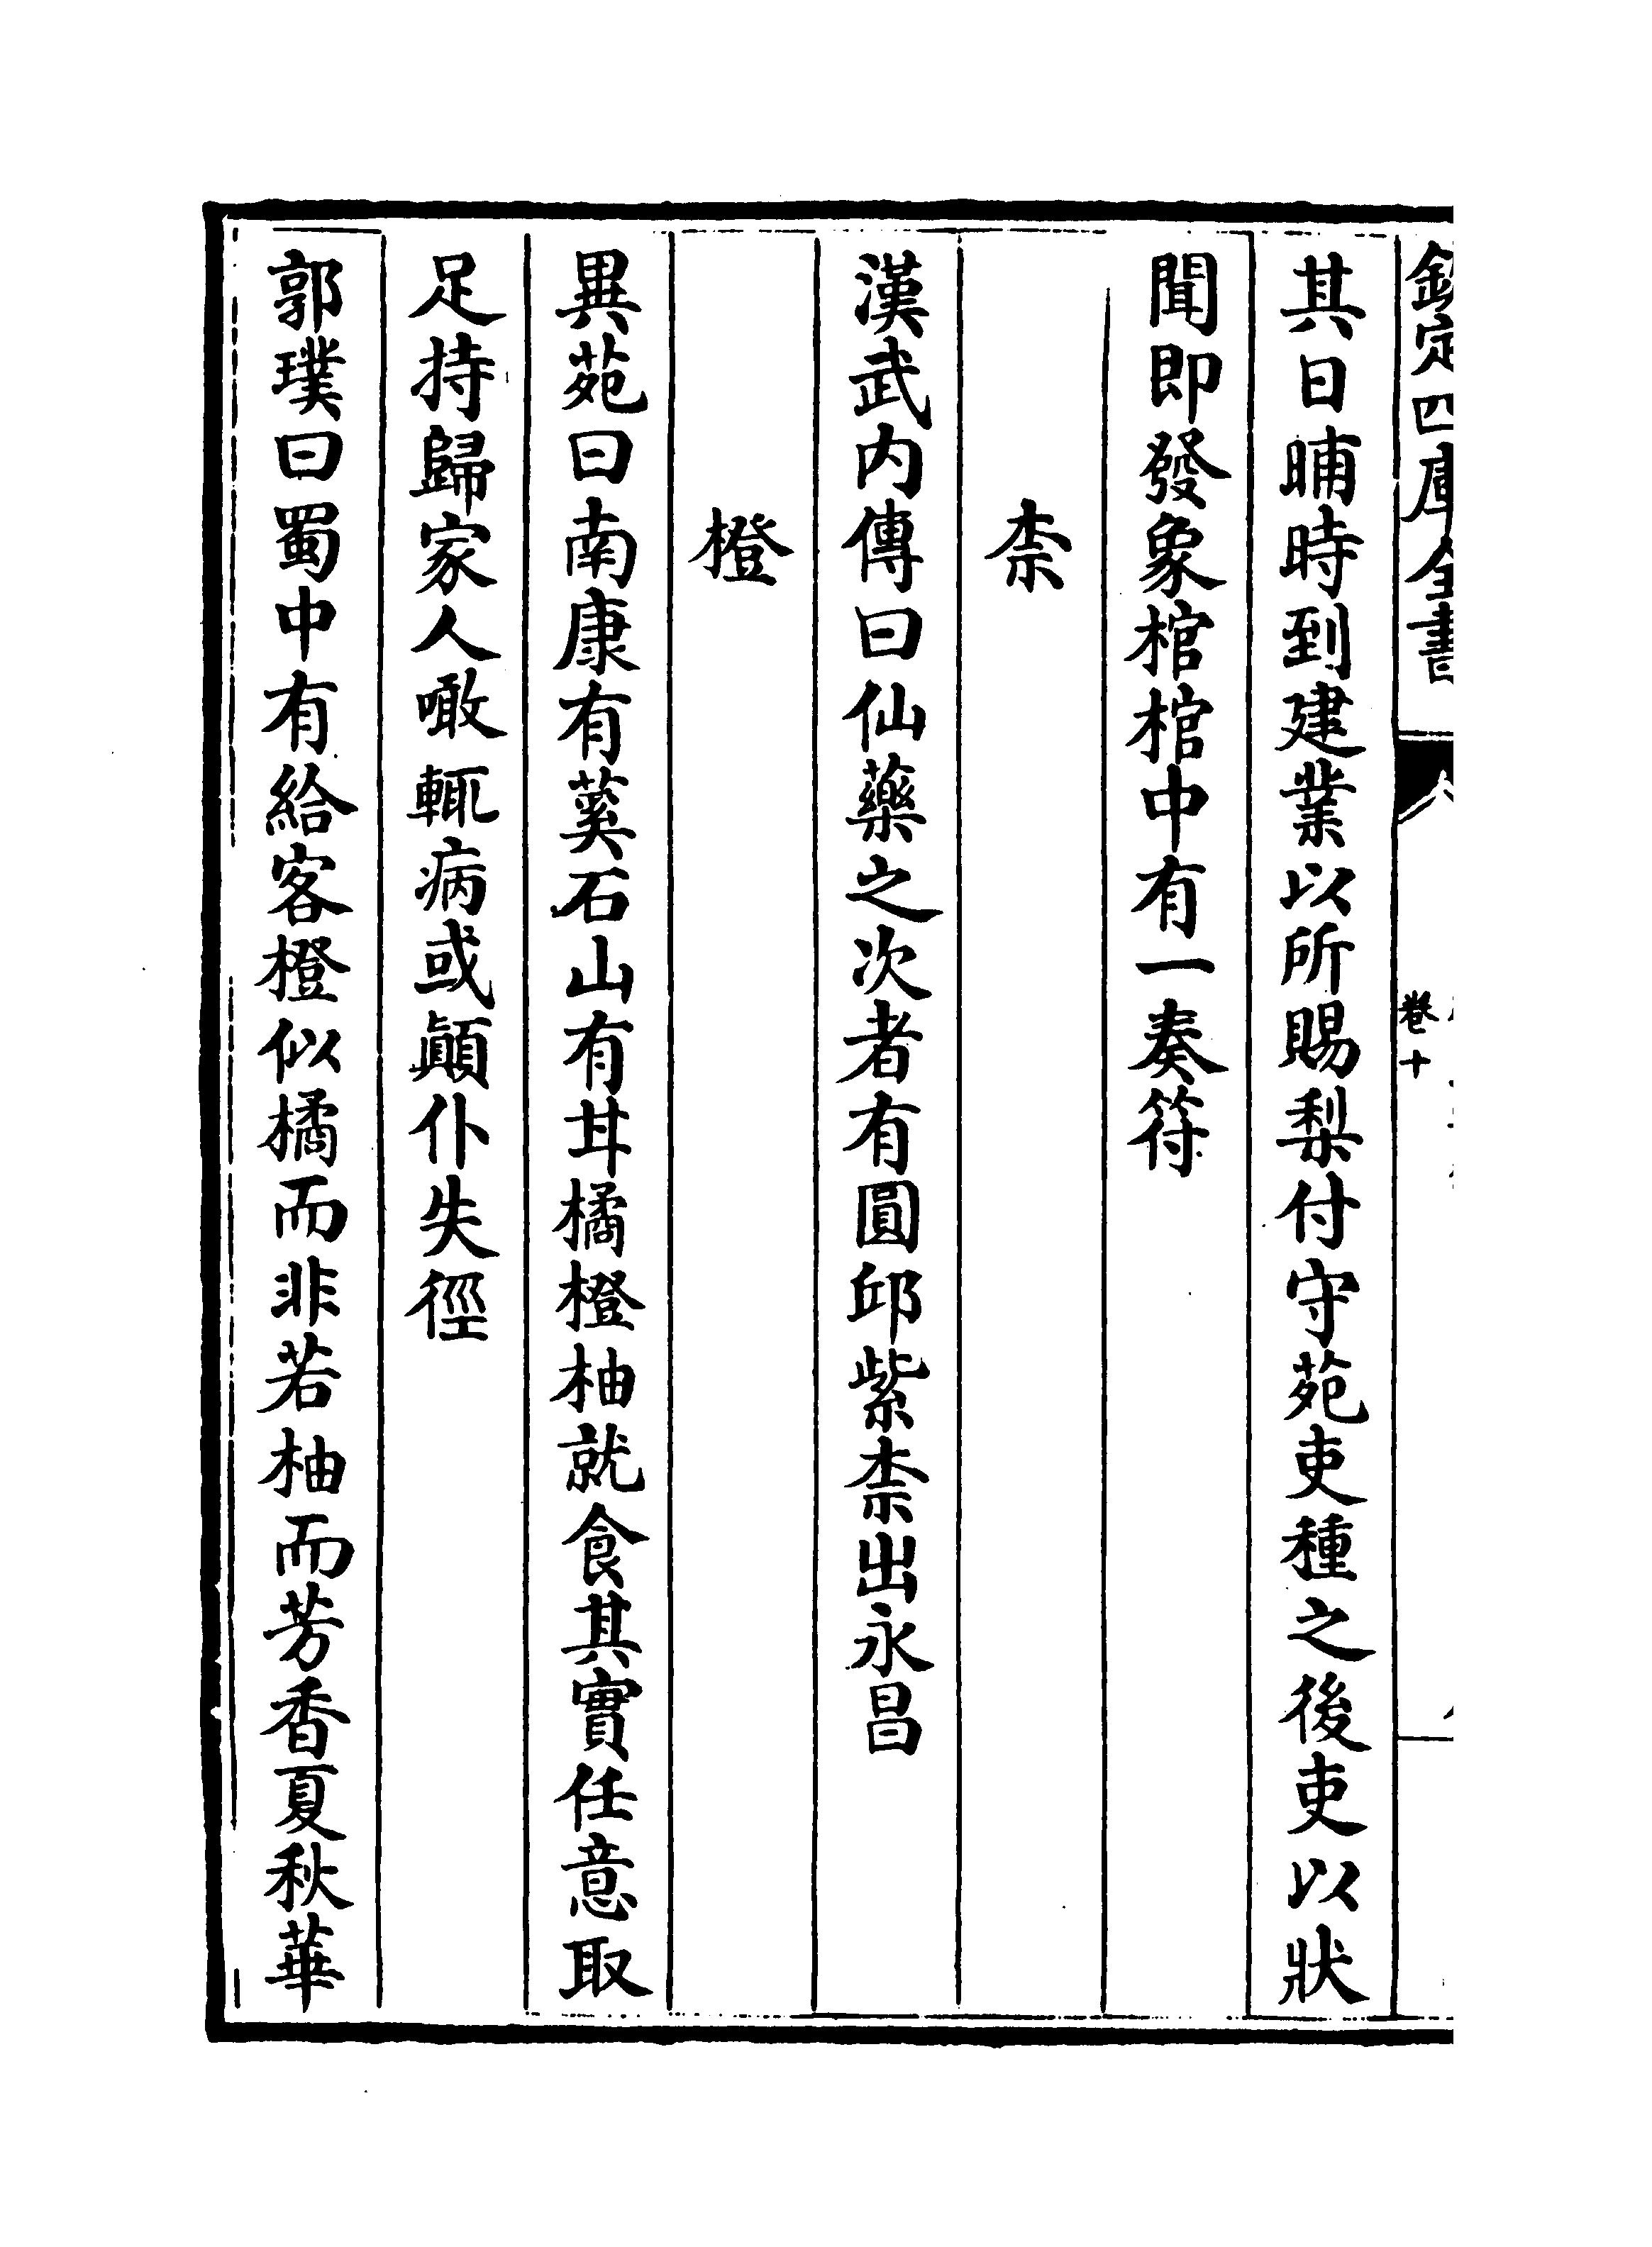 欽定四庫全書
卷十
其日晡時到建業以所賜梨付守苑吏種之後吏以狀
聞即發象棺棺中有一奏符
柰
漢武内傳曰仙藥之次者有圓邱紫柰出永昌
橙
異苑曰南康有蒵石山有甘橘橙柚就食其實任意取
足持歸家人噉輒病或顛仆失徑
郭璞曰蜀中有給客橙似橘而非若柚而芳香夏秋華